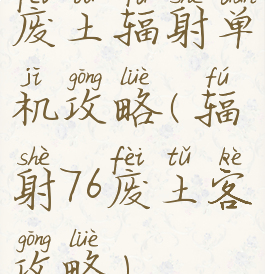 fèi tǔ fú shè dān
废土辐射单
jī gōng lüè fú
机攻略(辐
shè fèi tǔ kè
射76废土客
gōng lüè
攻略)